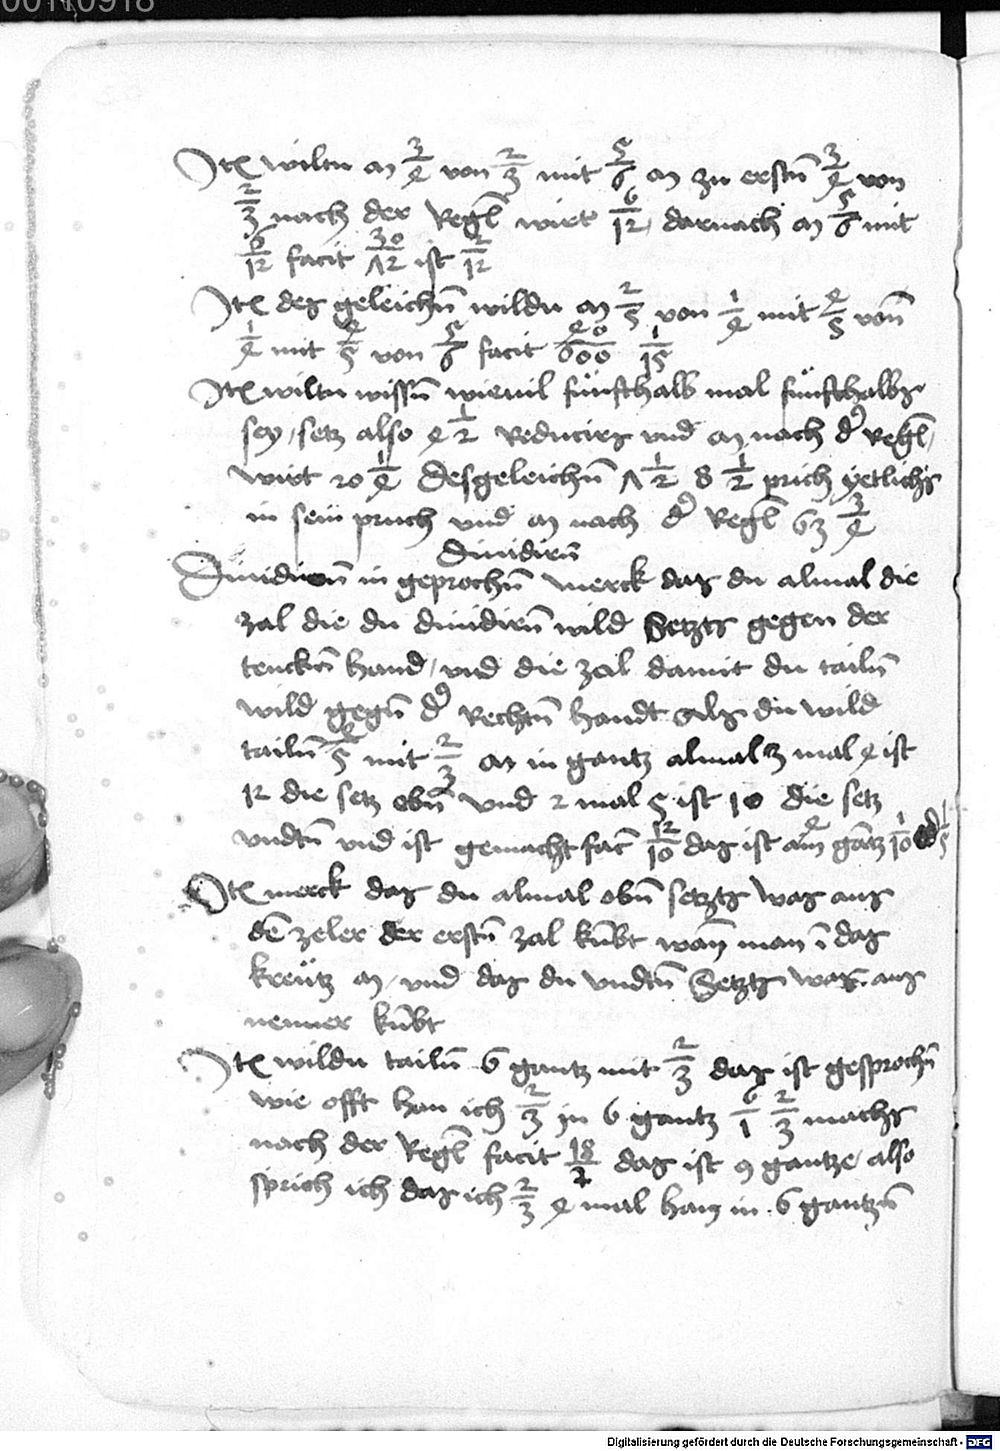 00110918
Itē wiltu m̄ 3/4 von 2/3 mit 5/6 m̄ zu erstn̄ 3/4 von
2/3 nach der Regl̄ wirt 6/12, darnach m̄ 5/6 mit
6/12 facit 30/72 ist /12
Itē des geleichn̄ wildu m̄ 2/5 von 1/4 mit 4/5 von̄
1/4 mit 4/5 von 5/6 facit 40/600 1/15
Itē wiltu wissn̄ wieuil fünfthalb mal fünfthalbs
sey, setz also 4 1/2 Reducirs und m̄ nach d' Regl̄,
wirt 20 1/4 Desgeleichn̄ 7 1/2 8 1/2 prich yetlichs
in sein pruch und m̄ nach d' Regl̄ 63 3/4
Diuidirn̄
Diuidirn̄ in geprochn̄ merck das du almal die
zal die du diuidirn̄ wild Setzts gegen der
tenckn̄ hand, und die zal damit du tailn̄
wild gegn̄ d' Rechtn̄ handt Als du wild
tailn̄ 4/5 mit 2/3 m̄ in gantz almal 3 mal 4 ist
12 die setz obn̄ und 2 mal 5 ist 10 die setz
undtn̄ und ist gemacht fac̄ 12/10 das ist ain gātz 2/10 od' 1/5
Itē merck das du almal obn̄ setzts was aus
dē zeler der erstn̄ zal kūbt wan̄ man ī das
kreütz m̄, und das du undtn̄ Setzts was aus
nenner kūbt
Itē wildu tailn̄ 6 gantz mit 2/3 das ist gesprochn̄
wie offt han ich 2/3 in 6 gantz 6/1 2/3 machs
nach der Regl̄ facit 18/2 das ist 9 gantze, also
sprich ich das ich 2/3 9 mal han in 6 gantzn̄
Digitalisierung gefördert durch die Deutsche Forschungsgemeinschaft - DFG